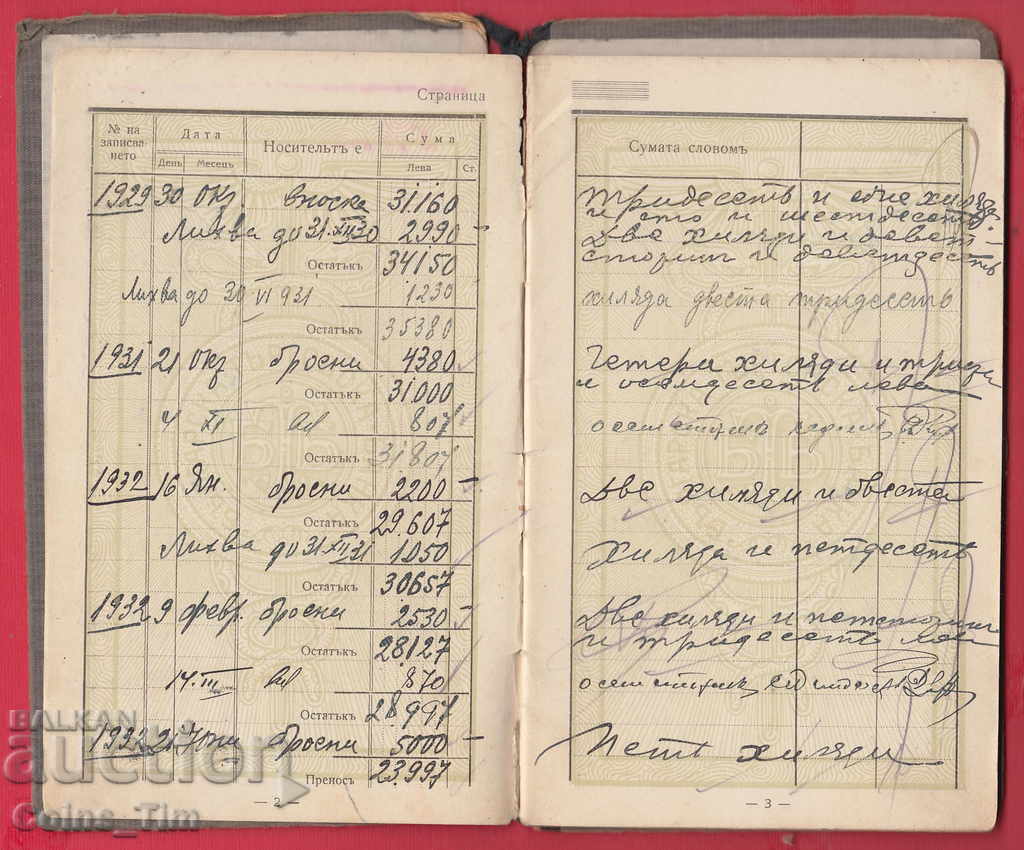 Страница
№ на записването Дата Носительтъ е Сума
День Месецъ Лева Ст.
1929 30 Окт. вноска 31.160
Лихва до 31.XII.30 2990
Остатъкъ 34150
Лихва до 30 VI 931 1230
Остатъкъ 35380
1931 21 Окт броени 4380
Остатъкъ 31.000
4 XI 807
Остатъкъ 31.807
1932 16 Ян. броени 2200
Остатъкъ 29.607
Лихва до 31.XII.31 1050
Остатъкъ 30657
1932 9 февр. броени 2530
Остатъкъ 28.127
14.III 870
Остатъкъ 28.997
21 Юни броени 5000
Преносъ 23.997
— 2 —
Сумата словомъ
тридесеть и хиляди
и сто и шестдесеть
Две хиляди и девет-
стотин и деветдесеть
хиляда двеста тридесеть
Четери хиляди и триста
и осемдесеть лева
Две хиляди и двеста
Хиляда и петдесеть
Две хиляди и петстотин
и тридесеть лева
Петь хиляди
— 3 —
BALKAN
auction
Coins_Tim